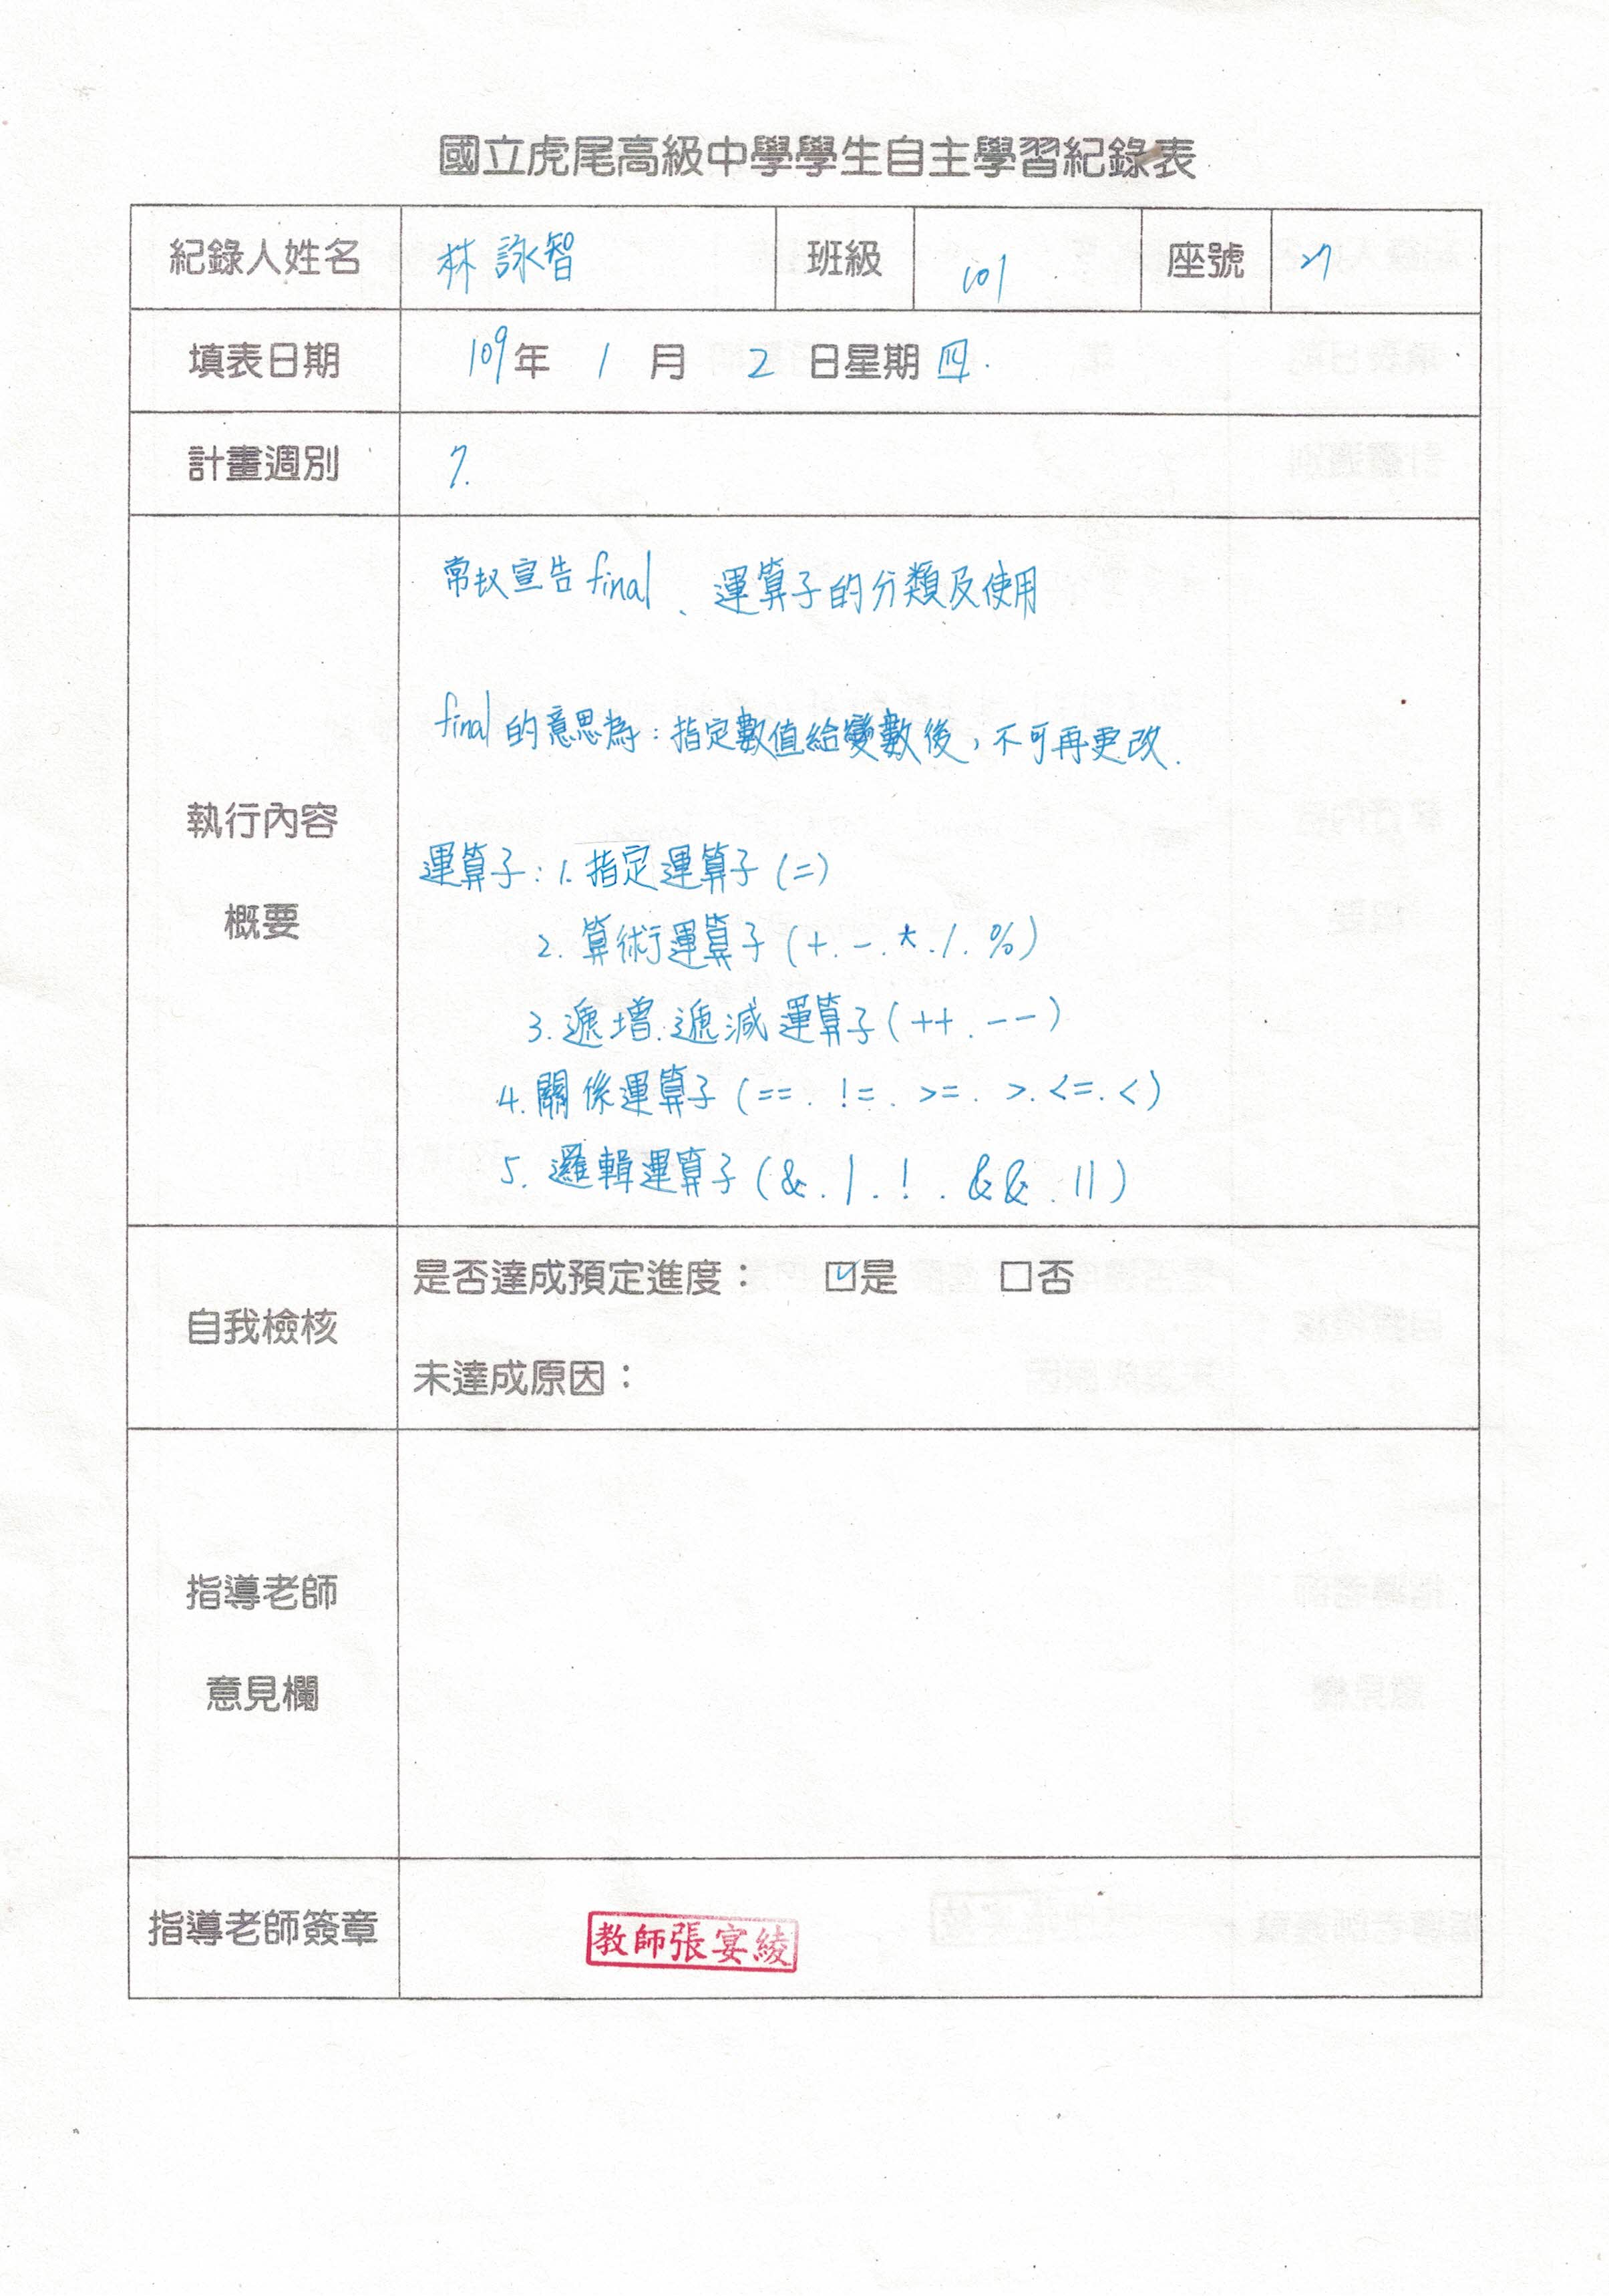 國立虎尾高級中學學生自主學習紀錄表
紀錄人姓名 林詠智 班級 101 座號 27
填表日期 109年 1 月 2 日星期 四.
計畫週別 7.
執行內容
概要
常数宣告 final、運算子的分類及使用
final 的意思為:指定數值給變數後,不可再更改.
運算子:1. 指定運算子 (=)
2. 算術運算子 (+. -. *. /. %)
3. 遞增.遞減運算子 (++. --)
4. 關係運算子 (==. !=. >=. >. <=. <)
5. 邏輯運算子 (&. |. !. &&. ||)
自我檢核
是否達成預定進度: ☑是 □否
未達成原因:
指導老師
意見欄
指導老師簽章 教師張宴綾